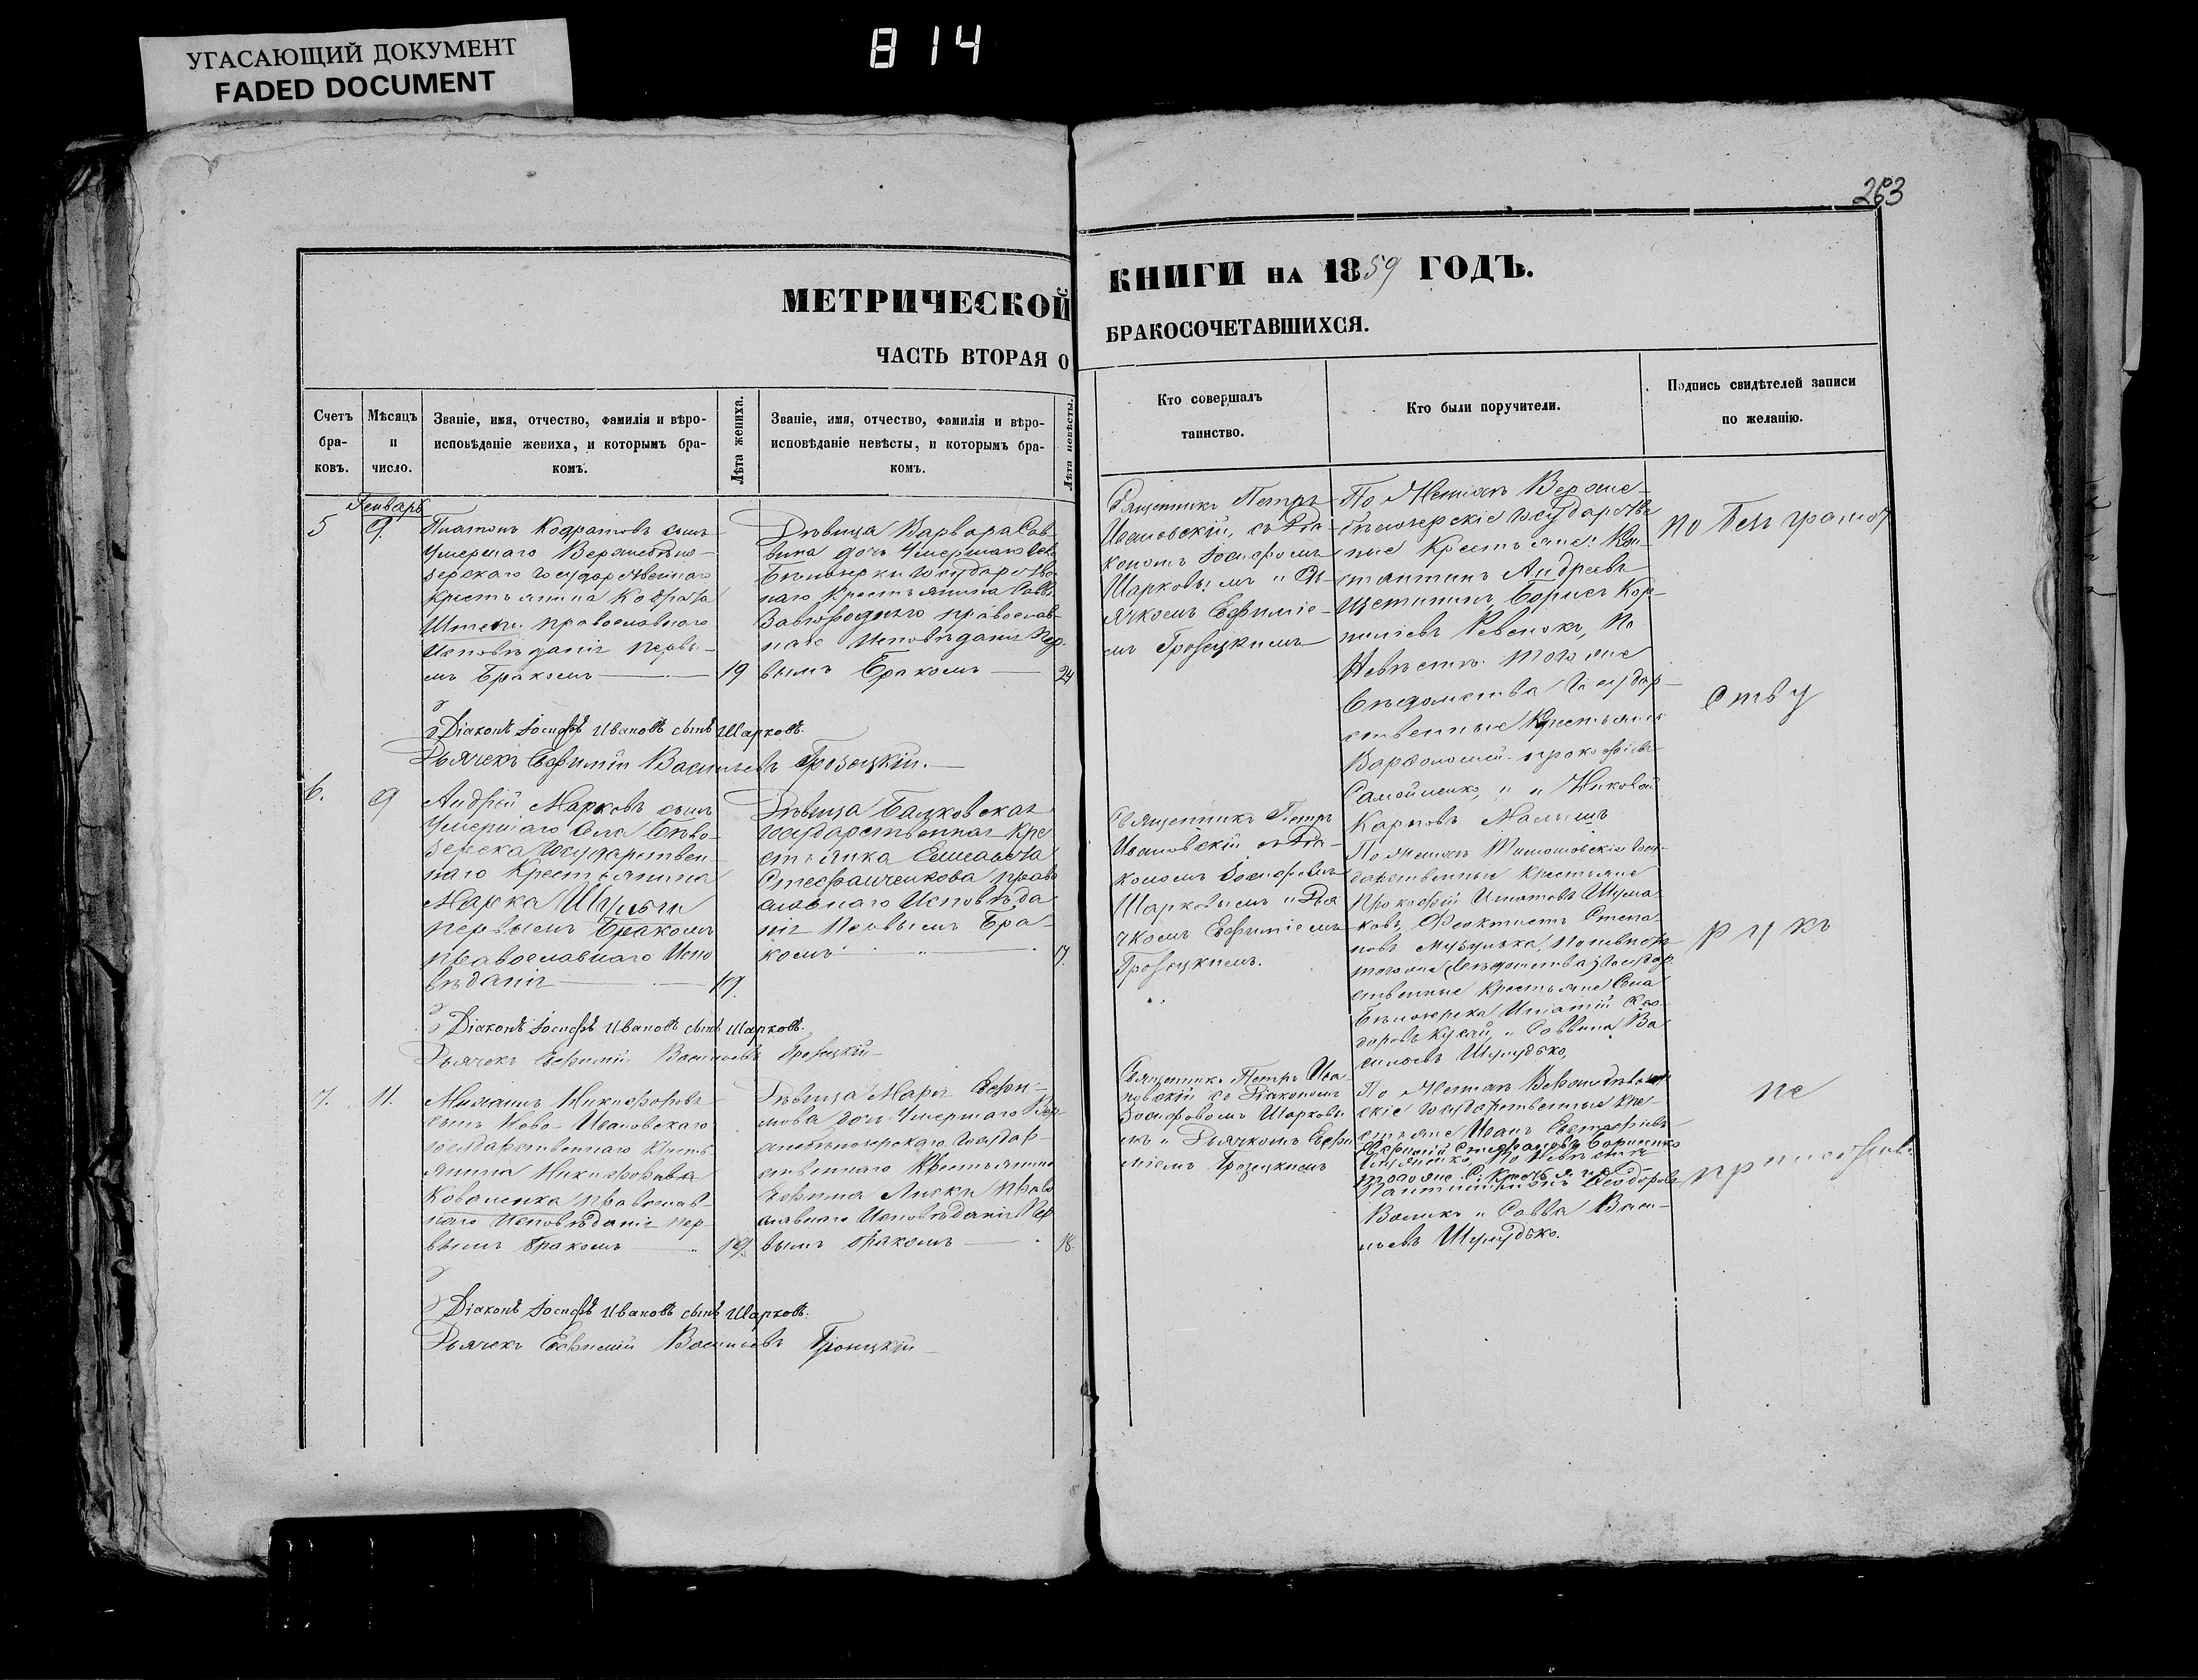 УГАСАЮЩИЙ ДОКУМЕНТ
FADED DOCUMENT
814
263
МЕТРИЧЕСКОЙ
ЧАСТЬ ВТОРАЯ О
КНИГИ НА 1859 ГОДЪ.
БРАКОСОЧЕТАВШИХСЯ.
Счетъ
бра-
ковъ.
Мѣсяцъ
и
число.
Званіе, имя, отчество, фамилія и вѣро-
исповѣданіе жениха, и которымъ бра-
комъ.
Лѣта жениха.
Званіе, имя, отчество, фамилія и вѣро-
исповѣданіе невѣсты, и которымъ бра-
комъ.
Лѣта невѣсты.
Кто совершалъ
таинство.
Кто были поручители.
Подпись свидѣтелей записи
по желанію.
Генварь
5
9.
Платонъ Кодратовъ сынъ
Умершаго
зерскаго Государственнаго
Крестьянина Кодрата
православнаго
Исповѣданія первы-
мъ Бракомъ
19
Дѣвица Варвара Сав-
вина дочь Умершаго
Бѣлозерки Государстве
наго Крестьянина Саввы
Завгороднаго православ-
наго Исповѣданія Пер-
вымъ Бракомъ
24
Священникъ Петръ
Ивановскій, съ Діа-
кономъ Іосифомъ
Шарковымъ и Дь-
ячкомъ Ефиміе-
мъ Грозецкимъ
По Женихѣ Верхне-
бѣлозерскіе Государстве
ные Крестьяне: Кон-
стантинъ Андреевъ
Щетининъ, Борисъ Кор-
ниліевъ Ревенокъ, По
Невѣстѣ того же
Вѣдомства Государ-
ственные Крестьяне
Варфоломей Прокофіевъ
Самойленко, и Николай
Карповъ Малышъ
по безграмот
ству
рукъ
не
приложили
Діаконъ Іосифъ Ивановъ сынъ Шарковъ.
Дьячекъ Ефимій Васильевъ Грозецкій.
6.
9
Андрей Марковъ сынъ
Умершаго Села Бѣло-
зерска Государствен-
наго Крестьянина
Марка
первымъ Бракомъ
православнаго Испо
вѣданія
19.
Дѣвица Балковская
Государственная Кре
стьянка Елисавета
Стефанченкова право
славнаго Исповѣда
нія Первымъ Бра-
комъ
17.
Священникъ Петръ
Ивановскій съ Діа-
кономъ Іосифомъ
Шарковымъ и Дья
чкомъ Ефиміемъ
Грозецкимъ.
По Женихѣ Тимошовскіе Госу-
дарственные Крестьяне
Прокофій Игнатовъ Шума-
ковъ, Феоктистъ Степа-
новъ Музулька, По невѣстѣ
того же Вѣдомства Государ-
ственные Крестьяне Села
Бѣлозерска Игнатій Фео-
доровъ Кусай, и Саввина Ва
сильевъ Шулудько,
Діаконъ Іосифъ Ивановъ сынъ Шарковъ.
Дьячекъ Ефимій Васильевъ Грозецкій
7.
11.
Михаилъ Никифоровъ
сынъ Ново-Ивановскаго
Государственнаго Кресть-
янина Никифорова
Коваленка православ-
наго Исповѣданія пер-
вымъ бракомъ
19.
Дѣвица Марія Ефи-
мова дочь Умершаго Вер-
хнебѣлозерскаго Государ-
ственнаго Крестьянина
Ефима Лиски право
славнаго Исповѣданія Пер
вымъ бракомъ
18.
Священникъ Петръ Ива-
новскій съ Діакономъ
Іосифовомъ Шарковы
мъ и Дьячкомъ Ефи
міемъ Грозецкимъ
По Женихѣ Верхнебѣлозер
скіе Государственные Кре-
стьяне Иванъ Евстафіевъ
Стефановъ Борисенко
По Невѣстѣ
того же С. Крестьяне
Феодоровъ
Воликъ и Савва Васи-
льевъ Шулудько.
Діаконъ Іосифъ Ивановъ сынъ Шарковъ.
Дьячекъ Ефимій Васильевъ Грозецкій